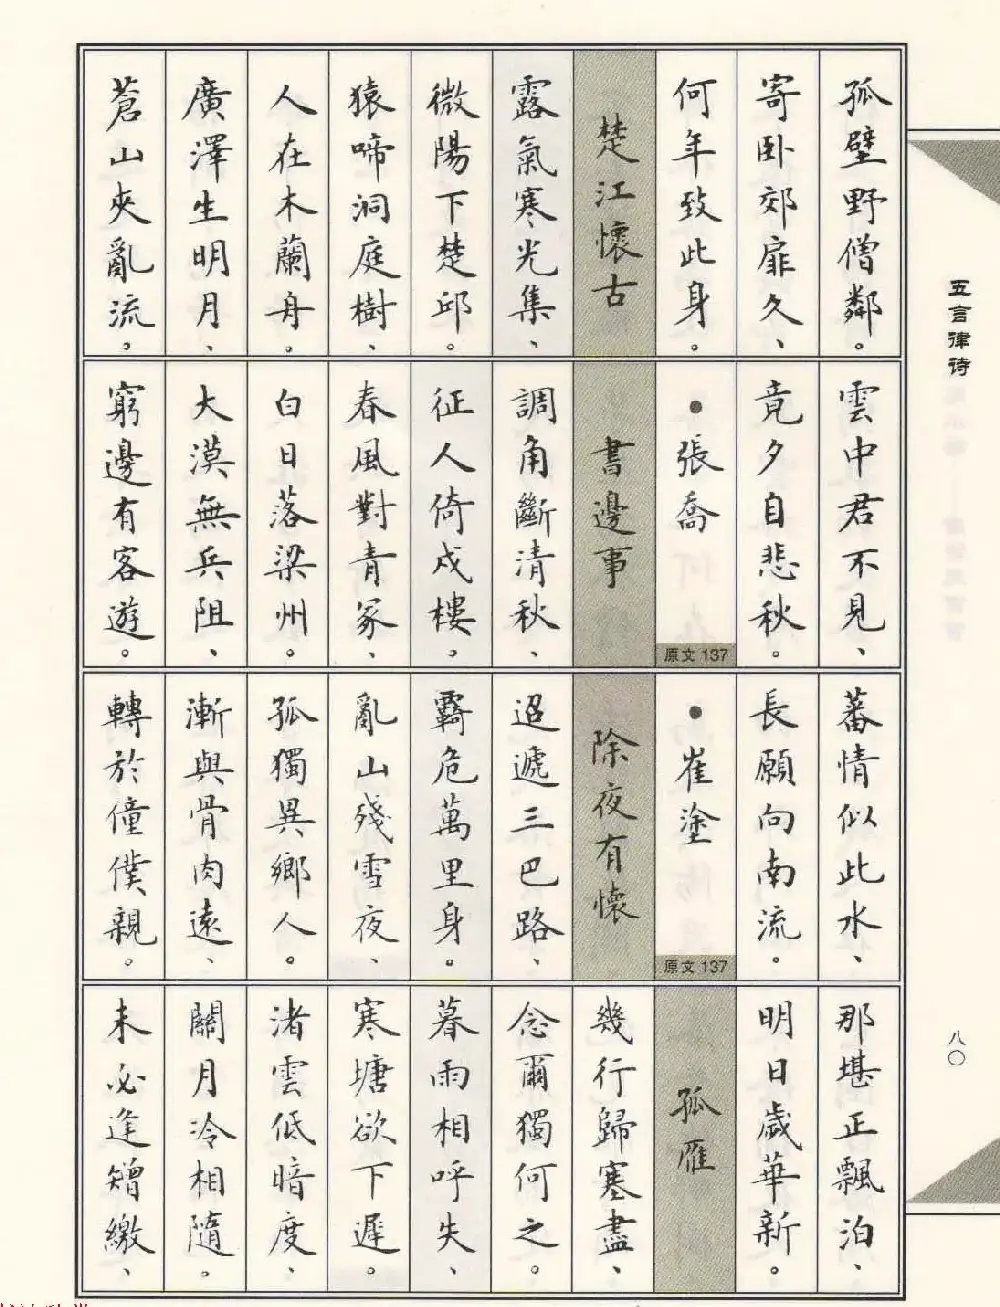 孤壁野僧鄰。
寄卧郊扉久、
何年致此身。
楚江懷古
露氣寒光集、
微陽下楚邱。
猿啼洞庭樹、
人在木蘭舟。
廣澤生明月、
蒼山夾亂流。
雲中君不見、
竟夕自悲秋。
●張喬
原文 137
書邊事
調角斷清秋、
征人倚戍樓。
春風對青冢、
白日落梁州。
大漠無兵阻、
窮邊有客遊。
蕃情似此水、
長願向南流。
●崔塗
原文 137
除夜有懷
迢遞三巴路、
羈危萬里身。
亂山殘雪夜、
孤獨異鄉人。
漸與骨肉遠、
轉於僮僕親。
那堪正飄泊、
明日歲華新。
孤雁
幾行歸塞盡、
念爾獨何之。
暮雨相呼失、
寒塘欲下遲。
渚雲低暗度、
關月冷相隨。
未必逢矰繳、
五言律诗
八〇